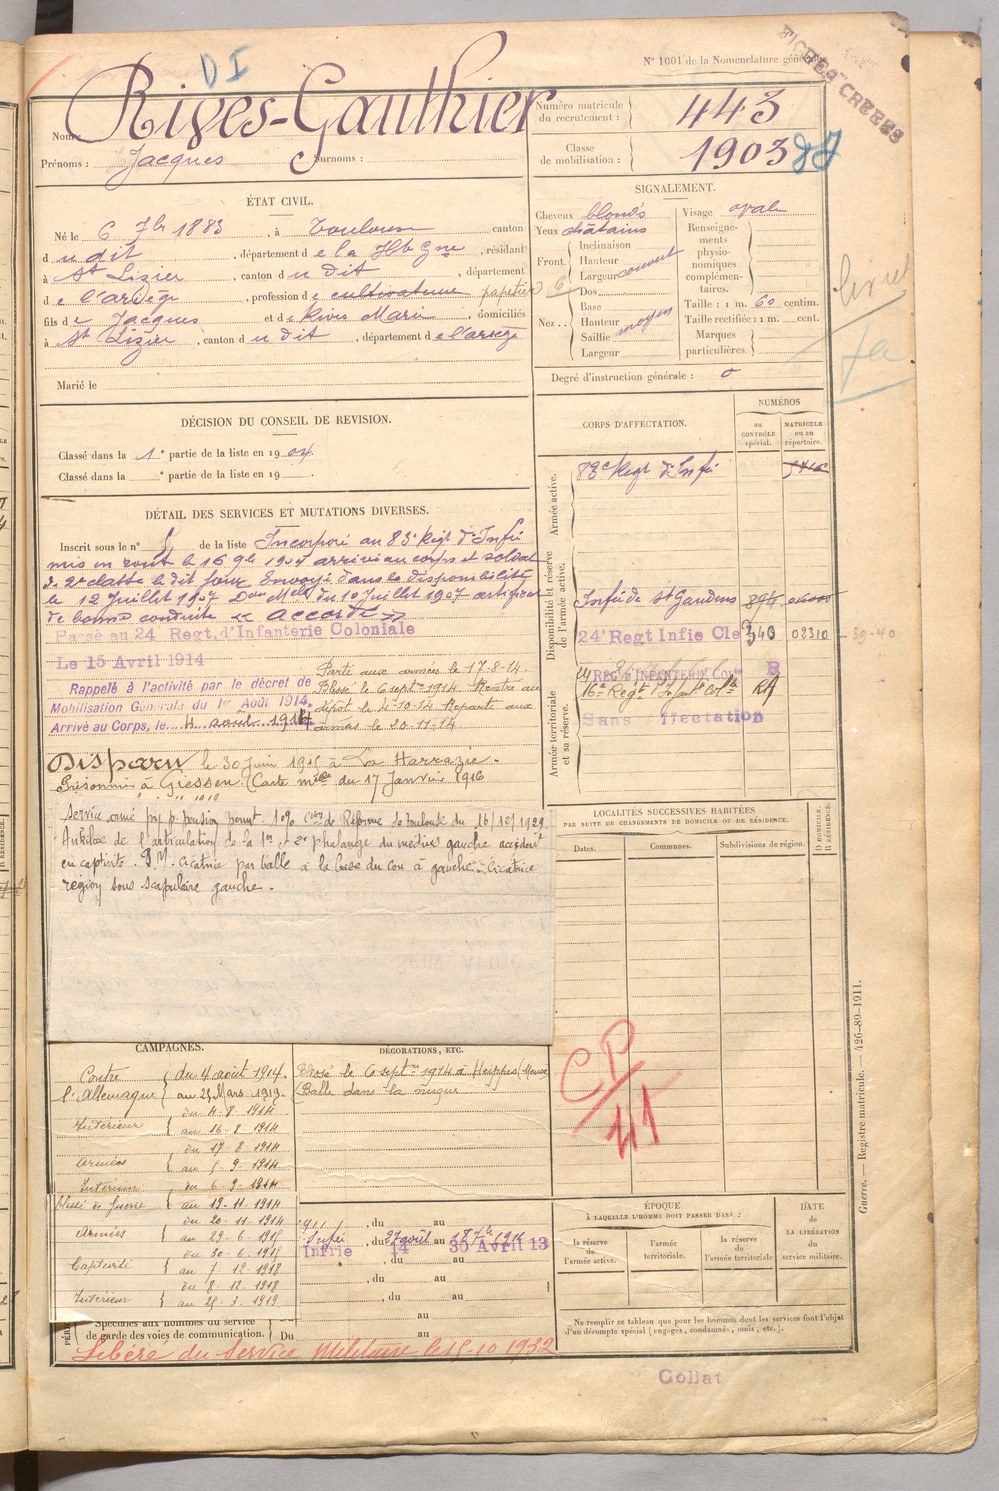 DI
FICHES CRÉÉES
N° 1001 de la Nomenclature générale
Nom : Rives-Gauthier
Prénoms : Jacques Surnoms :
Numéro matricule du recrutement : 443
Classe de mobilisation : 1903
ÉTAT CIVIL.
Né le 6 7bre 1883, à Toulouse canton
du dit, département de la Hte Gne, résidant
à St Lizier, canton du dit, département
de l'ariège, profession de cultivateur papetier
fils de Jacques et de Rives Marie, domiciliés
à St Lizier, canton du dit, département de l'ariège
Marié le
SIGNALEMENT.
Cheveux blonds
Yeux châtains
Front. Inclinaison
Hauteur
Largeur couvert
Nez.. Dos
Base
Hauteur
Saillie moyen
Largeur
Visage ovale
Renseigne-
ments
physio-
nomiques
complémen-
taires.
Taille : 1 m. 60 centim.
Taille rectifiée : 1 m. cent.
Marques
particulières.
Degré d'instruction générale : 0
DÉCISION DU CONSEIL DE REVISION.
Classé dans la 1e partie de la liste en 1904
Classé dans la e partie de la liste en 19 .
DÉTAIL DES SERVICES ET MUTATIONS DIVERSES.
Inscrit sous le n° de la liste Incorporé au 83e Régt d'Infie
mis en route le 16 9bre 1904 arrivé au corps et soldat
de 2e classe le dit jour. Envoyé dans la disponibilité
le 12 Juillet 1907 Don Mlle du 10 Juillet 1907 certificat
de bonne conduite « accordé »
Passé au 24 Regt. d'Infanterie Coloniale
Le 15 Avril 1914
Rappelé à l'activité par le décret de
Mobilisation Générale du 1er Août 1914.
Arrivé au Corps, le 4 août 1914
Parti aux armées le 17-8-14.
Blessé le 6 septre 1914. Rentré au
dépôt le 4-10-14. Reparti aux
armées le 20-11-14
Disparu le 30 Juin 1915 à La Harrazée.
Prisonnier à Giessen (Carte du 17 Janvier 1916
Service armé p. pension permt. 10% Con de Réforme de Toulouse du 16/12/1929.
Ankilose de l'articulation de la 1re et 2e phalange du médius gauche accident
en captivité. P.M. cicatrice par balle à la base du cou à gauche. Cicatrice
région sous scapulaire gauche.
CORPS D'AFFECTATION.
NUMÉROS
au CONTRÔLE spécial.
MATRICULE ou au répertoire.
Armée active.
83e Régt d'Infie
Disponibilité et réserve de l'armée active.
Infie de St Gaudens 894
24e Regt Infie Cle 340 02310 39-40
Armée territoriale et sa réserve.
RÉGt D'INFANTERIE COLle B
16e Régt Infant Colle
Sans Affectation
LOCALITÉS SUCCESSIVES HABITÉES
PAR SUITE DE CHANGEMENTS DE DOMICILE OU DE RÉSIDENCE.
Dates. Communes. Subdivisions de région. D DOMICILE. R RÉSIDENCE.
CP
41
CAMPAGNES.
Contre
l'Allemagne
du 4 août 1914.
au 23 Mars 1919.
Intérieur
du 4-8 1914
au 16-8 1914
Armées
du 17 8 1914
au 5-9-1914
Intérieur
blessé de guerre
du 6-9-1914
au 19-11-1914
Armées
du 20-11-1914
au 29-6-1915
Captivité
du 30-6-1915
au 7-12-1918
Intérieur
du 8-12-1918
DÉCORATIONS, ETC.
Blessé le 6 septre 1914 à Heippes (Meuse
Balle dans la nuque
, du au
, du 27 avril au
Infrie 14 30 Avril 13
, du au
, du au
, du au
au
Spéciales aux hommes du service
de garde des voies de communication. Du au
ÉPOQUE
À LAQUELLE L'HOMME DOIT PASSER DANS :
la réserve de l'armée active.
l'armée territoriale.
la réserve de l'armée territoriale
DATE
de
LA LIBÉRATION
du
service militaire.
Ne remplir ce tableau que pour les hommes dont les services font l'objet
d'un décompte spécial (engagés, condamnés, omis, etc.).
Libéré du Service Militaire le 15-10 1932
Collat
Guerre. — Registre matricule. — 426-89-1911.